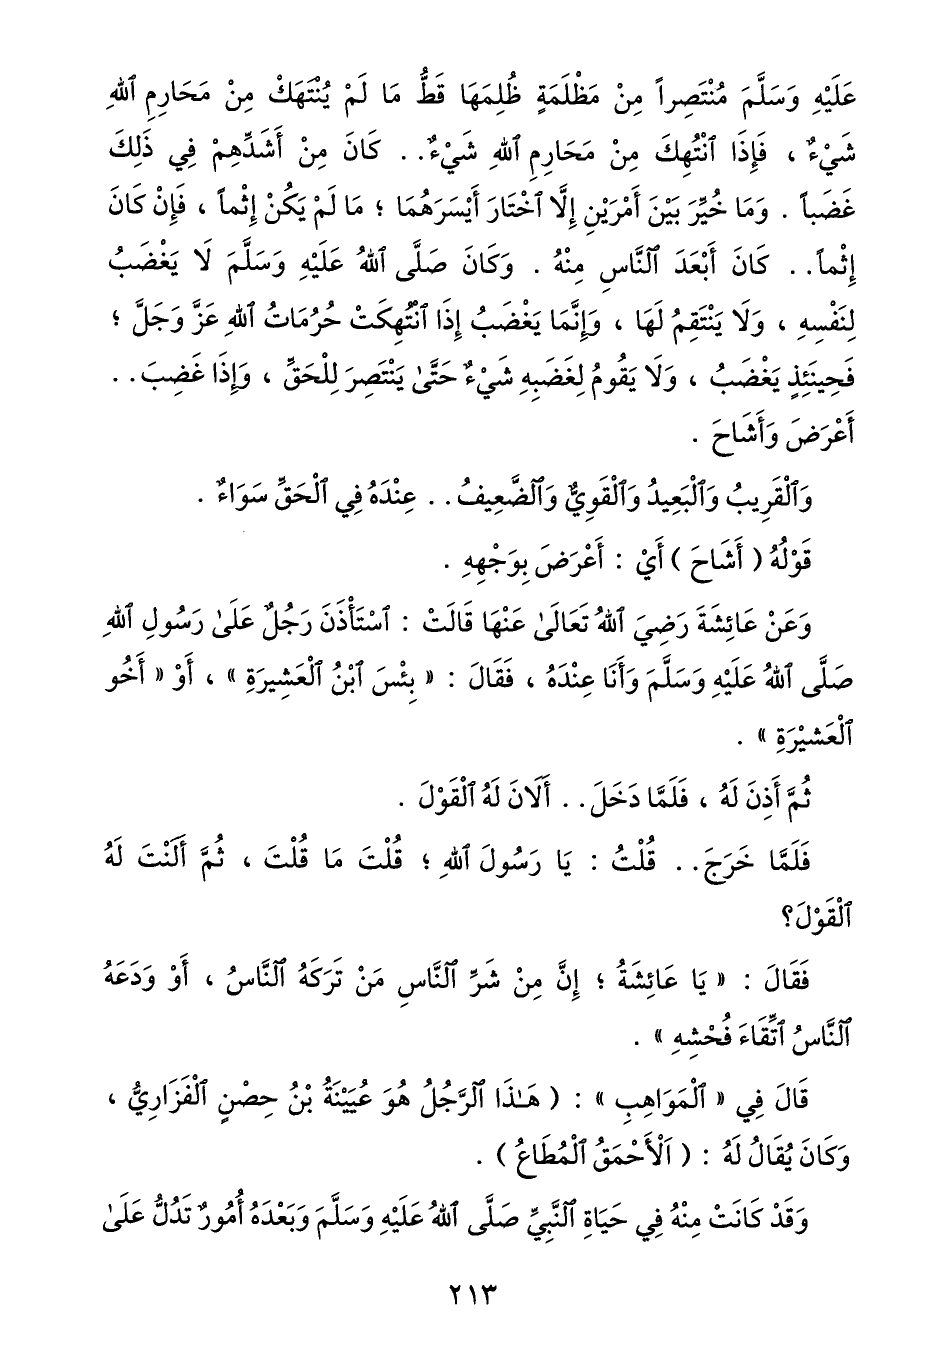 عَلَيْهِ وَسَلَّمَ مُنْتَصِراً مِنْ مَظْلَمَةٍ ظُلِمَهَا قَطُّ مَا لَمْ يُنْتَهَكْ مِنْ مَحَارِمِ ٱللهِ
شَيْءٌ ، فَإِذَا ٱنْتُهِكَ مِنْ مَحَارِمِ ٱللهِ شَيْءٌ . . كَانَ مِنْ أَشَدِّهِمْ فِي ذَلِكَ
غَضَباً . وَمَا خُيِّرَ بَيْنَ أَمْرَيْنِ إِلَّا ٱخْتَارَ أَيْسَرَهُمَا ؛ مَا لَمْ يَكُنْ إِثْماً ، فَإِنْ كَانَ
إِثْماً . . كَانَ أَبْعَدَ ٱلنَّاسِ مِنْهُ . وَكَانَ صَلَّى ٱللهُ عَلَيْهِ وَسَلَّمَ لَا يَغْضَبُ
لِنَفْسِهِ ، وَلَا يَنْتَقِمُ لَهَا ، وَإِنَّمَا يَغْضَبُ إِذَا ٱنْتُهِكَتْ حُرُمَاتُ ٱللهِ عَزَّ وَجَلَّ ؛
فَحِينَئِذٍ يَغْضَبُ ، وَلَا يَقُومُ لِغَضَبِهِ شَيْءٌ حَتَّىٰ يَنْتَصِرَ لِلْحَقِّ ، وَإِذَا غَضِبَ . .
أَعْرَضَ وَأَشَاحَ .
وَٱلْقَرِيبُ وَٱلْبَعِيدُ وَٱلْقَوِيُّ وَٱلضَّعِيفُ . . عِنْدَهُ فِي ٱلْحَقِّ سَوَاءٌ .
قَوْلُهُ ( أَشَاحَ ) أَيْ : أَعْرَضَ بِوَجْهِهِ .
وَعَنْ عَائِشَةَ رَضِيَ ٱللهُ تَعَالَىٰ عَنْهَا قَالَتْ : ٱسْتَأْذَنَ رَجُلٌ عَلَىٰ رَسُولِ ٱللهِ
صَلَّى ٱللهُ عَلَيْهِ وَسَلَّمَ وَأَنَا عِنْدَهُ ، فَقَالَ : « بِئْسَ ٱبْنُ ٱلْعَشِيرَةِ » ، أَوْ « أَخُو
ٱلْعَشِيْرَةِ » .
ثُمَّ أَذِنَ لَهُ ، فَلَمَّا دَخَلَ . . أَلَانَ لَهُ ٱلْقَوْلَ .
فَلَمَّا خَرَجَ . . قُلْتُ : يَا رَسُولَ ٱللهِ ؛ قُلْتَ مَا قُلْتَ ، ثُمَّ أَلَنْتَ لَهُ
ٱلْقَوْلَ؟
فَقَالَ : « يَا عَائِشَةُ ؛ إِنَّ مِنْ شَرِّ ٱلنَّاسِ مَنْ تَرَكَهُ ٱلنَّاسُ ، أَوْ وَدَعَهُ
ٱلنَّاسُ ٱتِّقَاءَ فُحْشِهِ » .
قَالَ فِي « ٱلْمَوَاهِبِ » : ( هَـٰذَا ٱلرَّجُلُ هُوَ عُيَيْنَةُ بْنُ حِصْنٍ ٱلْفَزَارِيُّ ،
وَكَانَ يُقَالُ لَهُ : ( ٱلْأَحْمَقُ ٱلْمُطَاعُ ) .
وَقَدْ كَانَتْ مِنْهُ فِي حَيَاةِ ٱلنَّبِيِّ صَلَّى ٱللهُ عَلَيْهِ وَسَلَّمَ وَبَعْدَهُ أُمُورٌ تَدُلُّ عَلَىٰ
٢١٣